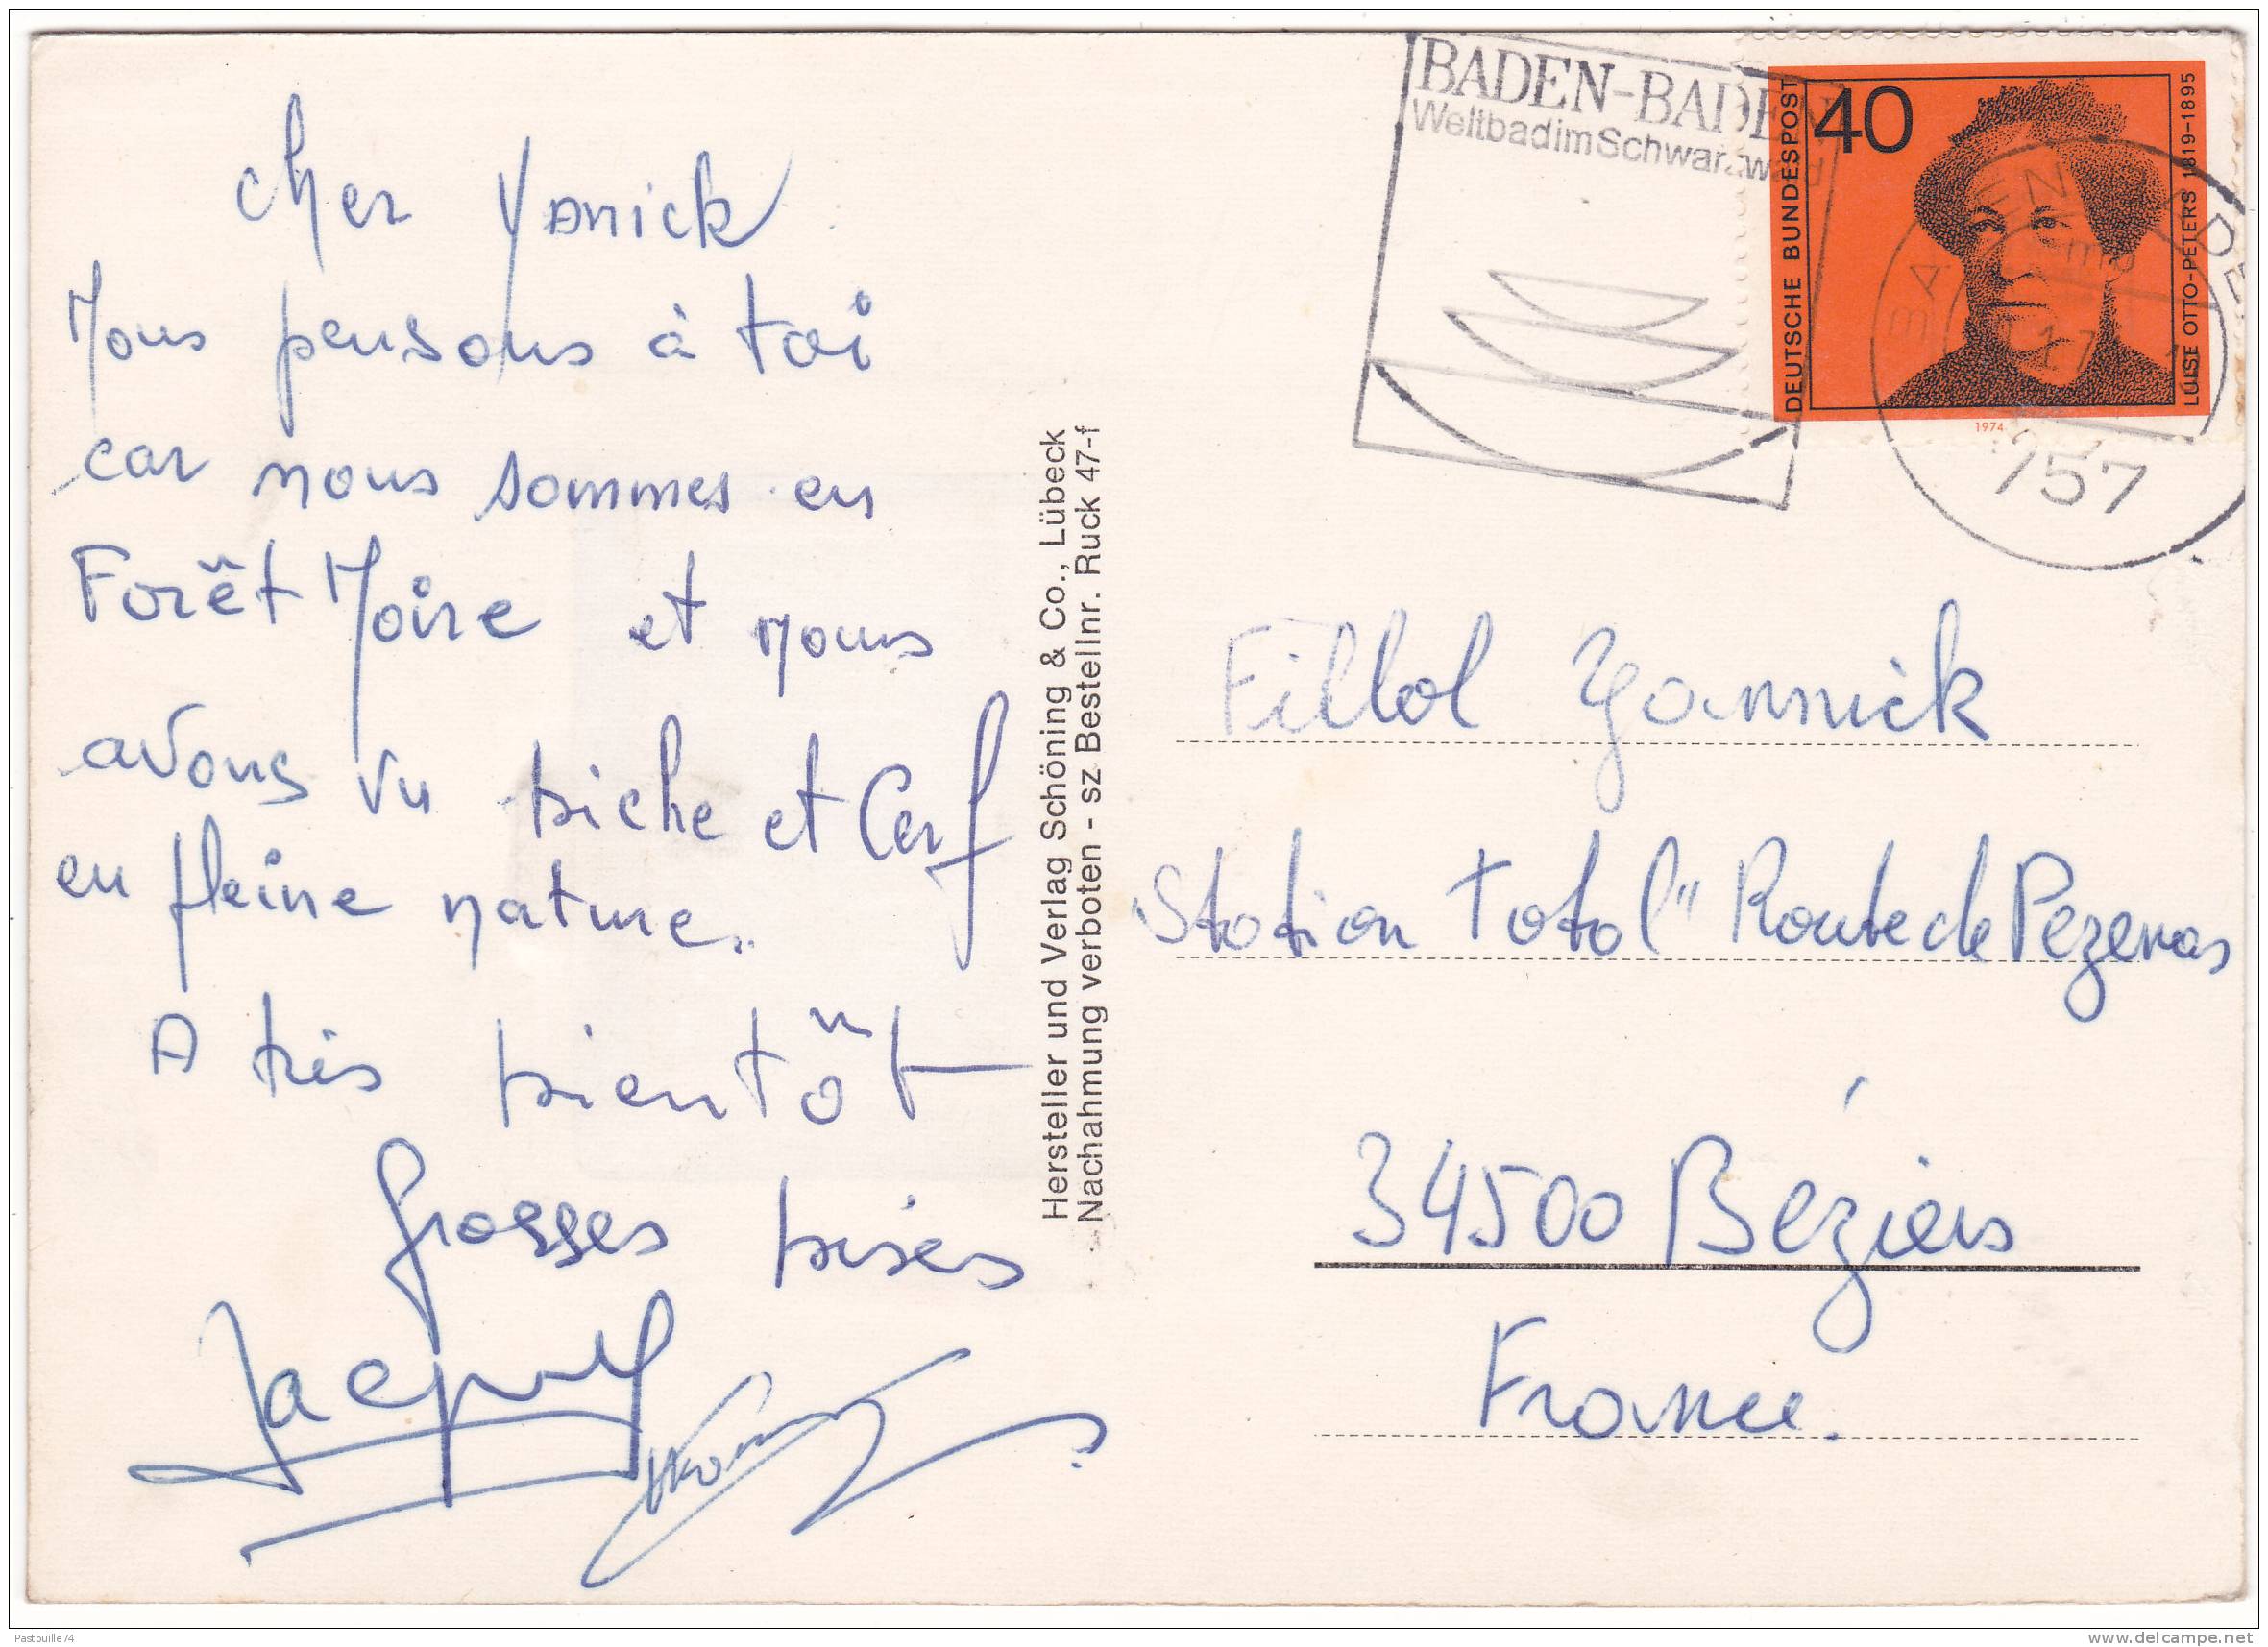 cher Yanick
Nous pensons à toi
car nous sommes en
Forêt Noire et nous
avons vu biche et Cerf
en pleine nature..
A très bientôt
Grosses bises
Hersteller und Verlag Schöning & Co., Lübeck
Nachahmung verboten - sz Bestellnr. Ruck 47-f
BADEN-BADEN
Weltbad im Schwarzwald
DEUTSCHE BUNDESPOST
40
LUISE OTTO-PETERS 1819-1895
1974
757
Fillol Yannick
Station Total" Route de Pezenas
34500 Béziers
France.
Pastouille74
www.delcampe.net